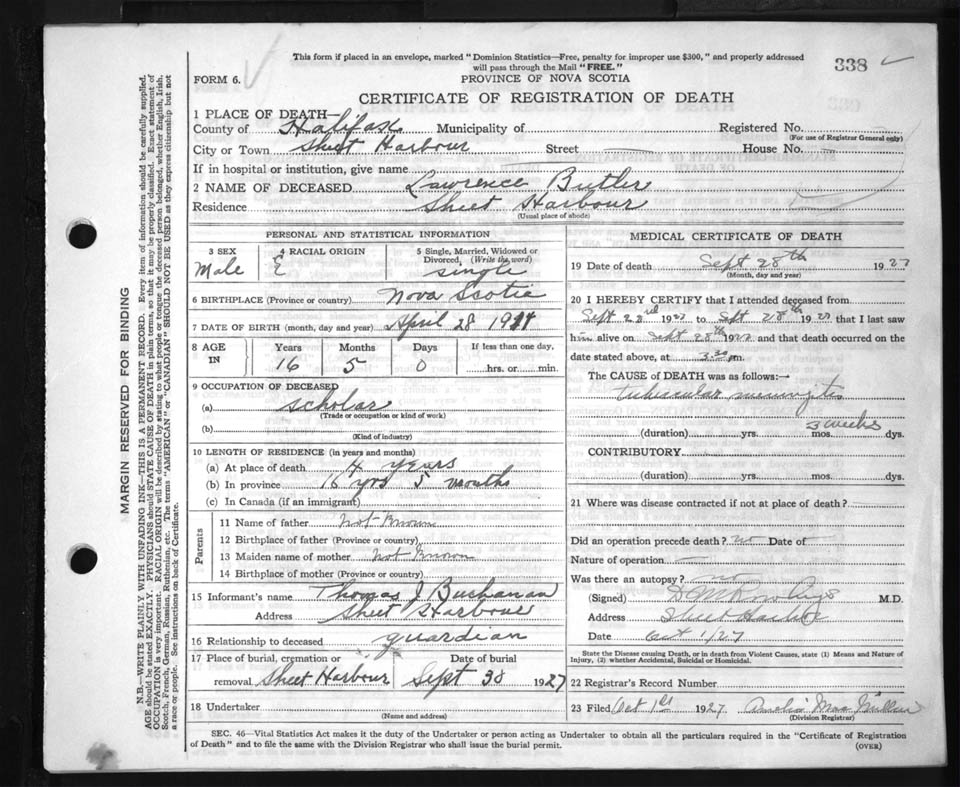 This form if placed in an envelope, marked "Dominion Statistics—Free, penalty for improper use $300," and properly addressed
will pass through the Mail "FREE."
338
FORM 6.
PROVINCE OF NOVA SCOTIA
CERTIFICATE OF REGISTRATION OF DEATH
1 PLACE OF DEATH—
County of Halifax Municipality of Registered No.
(For use of Registrar General only)
City or Town Sheet Harbour Street House No.
If in hospital or institution, give name
2 NAME OF DECEASED Lawrence Butler
Residence Sheet Harbour
(Usual place of abode)
PERSONAL AND STATISTICAL INFORMATION
3 SEX 4 RACIAL ORIGIN 5 Single, Married, Widowed or
Divorced, (Write the word)
Male E single
6 BIRTHPLACE (Province or country) Nova Scotia
7 DATE OF BIRTH (month, day and year) April 28 1911
8 AGE IN Years Months Days If less than one day,
16 5 0 hrs. or min.
9 OCCUPATION OF DECEASED
(a) scholar
(Trade or occupation or kind of work)
(b)
(Kind of industry)
10 LENGTH OF RESIDENCE (in years and months)
(a) At place of death 4 years
(b) In province 16 yrs 5 months
(c) In Canada (if an immigrant)
Parents
11 Name of father Not Known
12 Birthplace of father (Province or country)
13 Maiden name of mother Not Known
14 Birthplace of mother (Province or country)
15 Informant's name Thomas J Buchanan
Address Sheet Harbour
16 Relationship to deceased guardian
17 Place of burial, cremation or removal Date of burial
Sheet Harbour Sept 30 1927
18 Undertaker
(Name and address)
MEDICAL CERTIFICATE OF DEATH
19 Date of death Sept 28th 1927
(Month, day and year)
20 I HEREBY CERTIFY that I attended deceased from
Sept 23rd 1927 to Sept 28th 1927 that I last saw
him alive on Sept 28th 1927 and that death occurred on the
date stated above, at 3.30 pm.
The CAUSE OF DEATH was as follows:—
tubercular meningitis
3 weeks
(duration) yrs. mos. dys.
CONTRIBUTORY
(duration) yrs. mos. dys.
21 Where was disease contracted if not at place of death?
Did an operation precede death? no Date of
Nature of operation
Was there an autopsy? no
(Signed) M.D.
Address Sheet Harbor
Date Oct 1/27
State the Disease causing Death, or in death from Violent Causes, state (1) Means and Nature of
Injury, (2) whether Accidental, Suicidal or Homicidal.
22 Registrar's Record Number
23 Filed Oct 1st 1927
(Division Registrar)
SEC. 46—Vital Statistics Act makes it the duty of the Undertaker or person acting as Undertaker to obtain all the particulars required in the "Certificate of Registration
of Death" and to file the same with the Division Registrar who shall issue the burial permit.
(OVER)
MARGIN RESERVED FOR BINDING
N.B.—WRITE PLAINLY WITH UNFADING INK—THIS IS A PERMANENT RECORD. Every item of information should be carefully supplied.
AGE should be stated EXACTLY. PHYSICIANS should STATE CAUSE OF DEATH in plain terms, so that it may be properly classified. Exact statement of
OCCUPATION is very important. RACIAL ORIGIN will be described by stating to what people or tongue the deceased person belonged, whether English, Irish,
Scotch, French, German, Russian, Ruthenian, etc. The terms "AMERICAN" or "CANADIAN" SHOULD NOT BE USED as they express citizenship but not
a race or people. See instructions on back of Certificate.